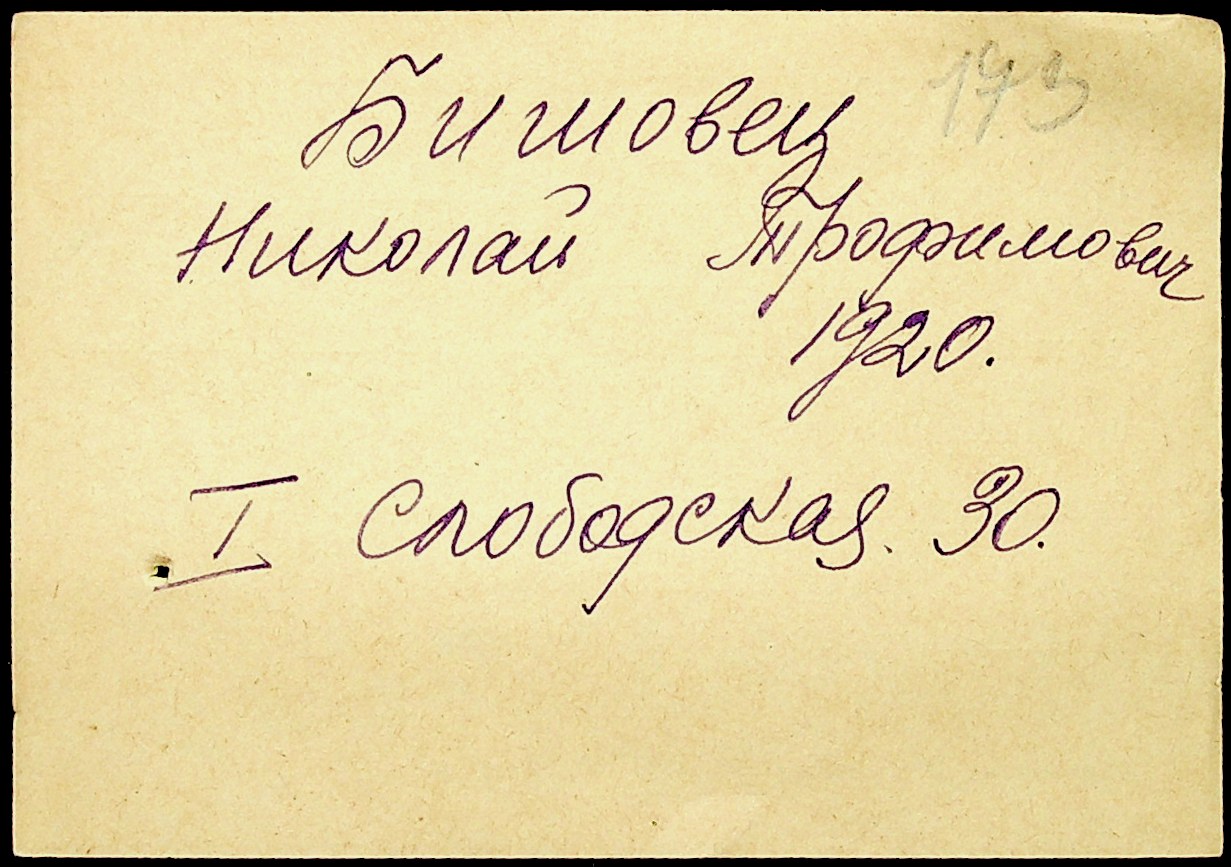 173
Бишовец
Николай Трофимович
1920.
I Слободская. 30.